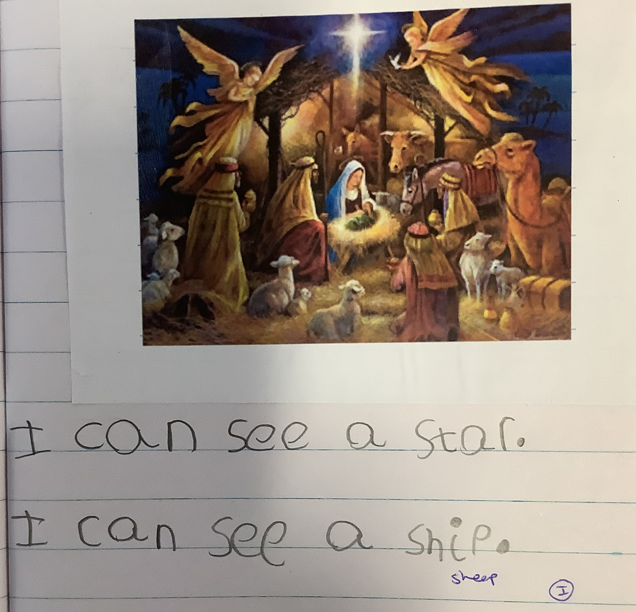 I can see a star.
I can see a ship.
sheep
I